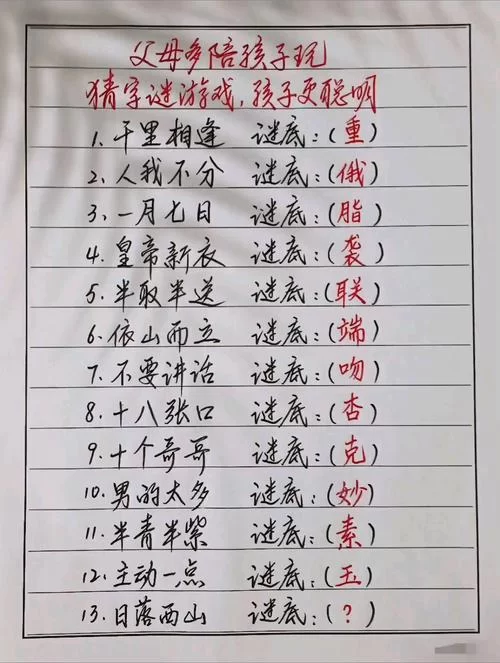 父母多陪孩子玩
猜字谜游戏,孩子更聪明
1.千里相逢 谜底:(重)
2.人我不分 谜底:(俄)
3.一月七日 谜底:(脂)
4.皇帝新衣 谜底:(袭)
5.半取半送 谜底:(联)
6.依山而立 谜底:(端)
7.不要讲话 谜底:(吻)
8.十八张口 谜底:(杏)
9.十个哥哥 谜底:(克)
10.男的太多 谜底:(妙)
11.半青半紫 谜底:(素)
12.主动一点 谜底:(玉)
13.日落西山 谜底:(?)